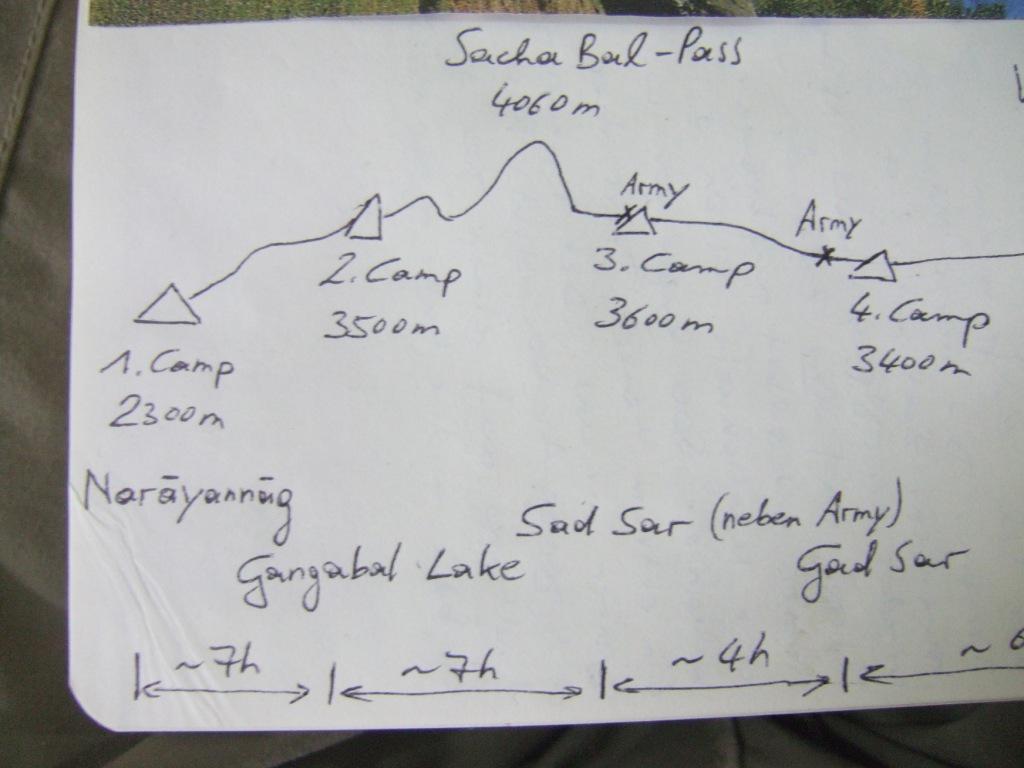 Sacha Bal-Pass
4060m
Army
Army
2. Camp
3500m
3. Camp
3600m
4. Camp
3400m
1. Camp
2300m
Narāyannāg
Sad Sar (neben Army)
Gangabal Lake
Gad Sar
~7h
~7h
~4h
~6